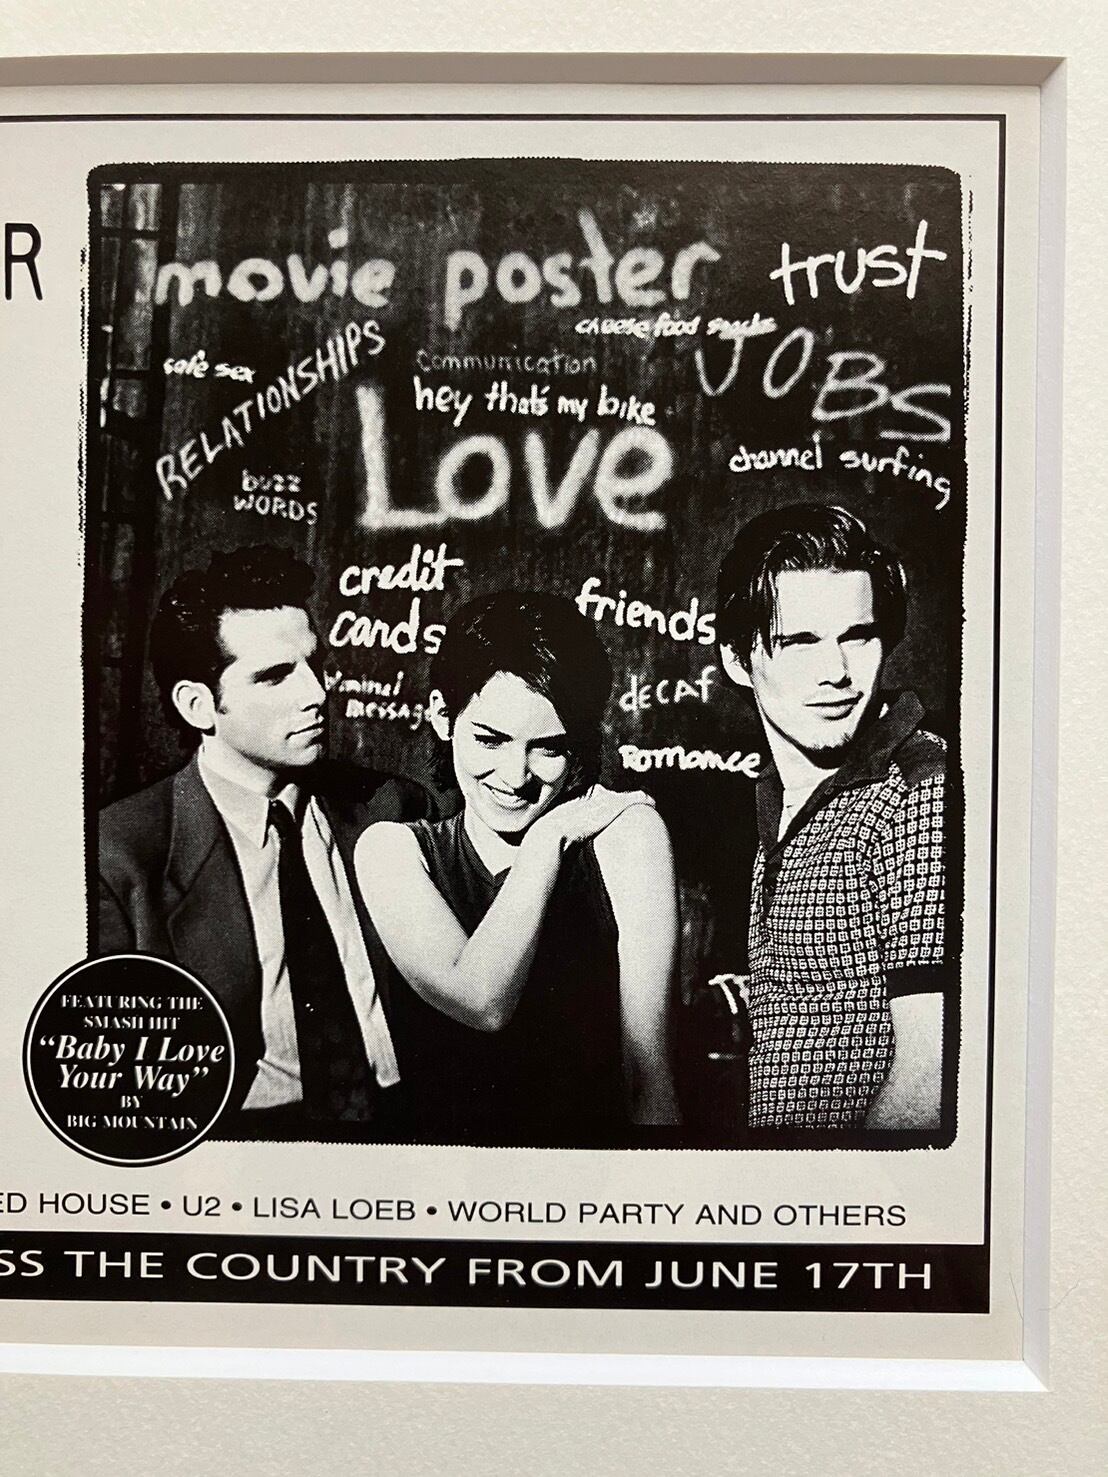 R
movie poster
trust
cheese food snacks
JOBS
safe sex
RELATIONSHIPS
communication
hey that's my bike
Love
channel surfing
buzz
WORDS
credit
cards
friends
message
decaf
Romance
FEATURING THE
SMASH HIT
"Baby I Love
Your Way"
BY
BIG MOUNTAIN
ED HOUSE • U2 • LISA LOEB • WORLD PARTY AND OTHERS
SS THE COUNTRY FROM JUNE 17TH